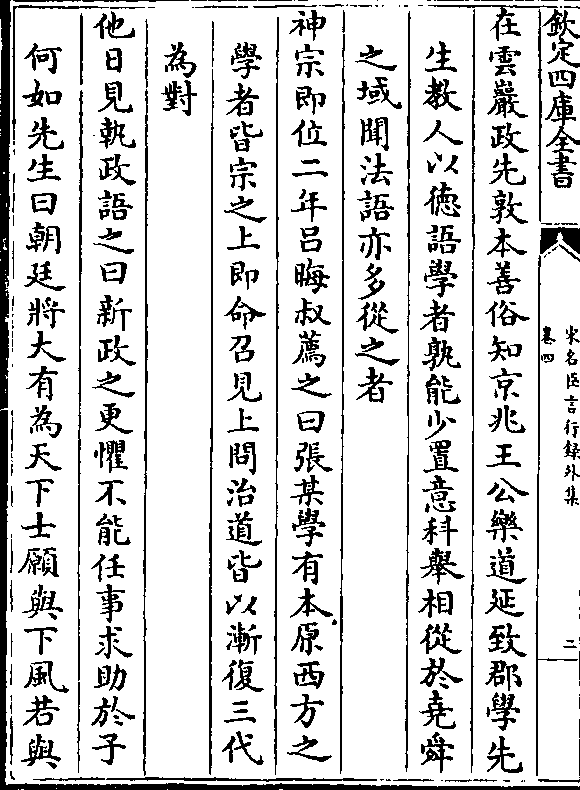 欽定四庫全書
宋名臣言行録外集
卷四
二
在雲巖政先敦本善俗知京兆王公樂道延致郡學先
生教人以德語學者孰能少置意科舉相從於堯舜
之域聞法語亦多從之者
神宗即位二年吕晦叔薦之曰張某學有本原西方之
學者皆宗之上即命召見上問治道皆以漸復三代
為對
他日見執政語之曰新政之更懼不能任事求助於子
何如先生曰朝廷將大有為天下士願與下風若與